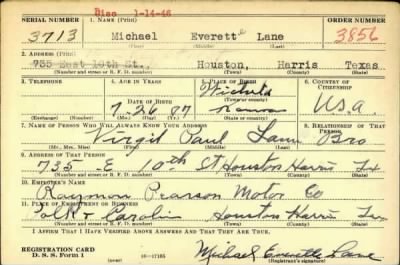 Disc 1-14-46
SERIAL NUMBER 1. NAME (Print) ORDER NUMBER
3713 Michael Everette Lane 3856
(First) (Middle) (Last)
2. ADDRESS (Print)
735 East 10th St., Houston, Harris Texas
(Number and street or R. F. D. number) (Town) (County) (State)
3. TELEPHONE 4. AGE IN YEARS 5. PLACE OF BIRTH 6. COUNTRY OF CITIZENSHIP
Wichita
DATE OF BIRTH (Town or county)
7-26-07 Kansas U.S.A.
(Exchange) (Number) (Mo.) (Day) (Yr.) (State or country)
7. NAME OF PERSON WHO WILL ALWAYS KNOW YOUR ADDRESS 8. RELATIONSHIP OF THAT PERSON
Virgil Paul Lane Bro
(Mr., Mrs., Miss) (First) (Middle) (Last)
9. ADDRESS OF THAT PERSON
735 E. 10th St Houston Harris Tx
(Number and street or R. F. D. number) (Town) (County) (State)
10. EMPLOYER'S NAME
Raymon Pearson Motor Co
11. PLACE OF EMPLOYMENT OR BUSINESS
Polk & Carolin Houston Harris Tex
(Number and street or R. F. D. number) (Town) (County) (State)
I AFFIRM THAT I HAVE VERIFIED ABOVE ANSWERS AND THAT THEY ARE TRUE.
REGISTRATION CARD
D. S. S. Form 1 (over) 16-17105 Michael Everette Lane
(Registrant's signature)